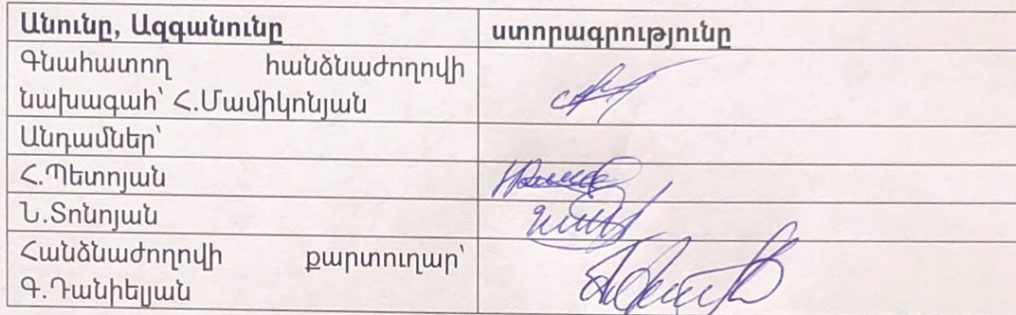 Անունը, Ազգանունը ստորագրությունը
Գնահատող հանձնաժողովի
նախագահ՝ Հ.Մամիկոնյան
Անդամներ՝
Հ.Պետոյան
Ն.Տոնոյան
Հանձնաժողովի քարտուղար՝
Գ.Դանիելյան